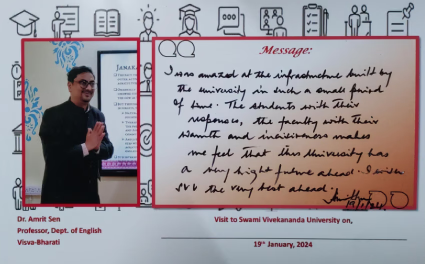 Message:
I was amazed at the infrastructure built by
the university in such a small period
of time. The students with their
responses, the faculty with their
warmth and incisiveness makes
me feel that this University has
a very bright future ahead. I wish
SVU the very best ahead.
Dr. Amrit Sen
Professor, Dept. of English
Visva-Bharati
Visit to Swami Vivekananda University on,
19th January, 2024